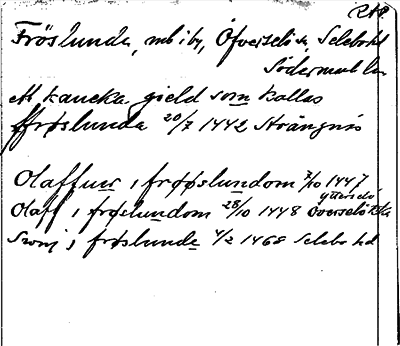 RAP.
Fröslunda, mbiby, Öfverselö sn, Selebo hd
Södermanl. län
ett kancka gield som kallas
ffrøslunda 20/7 1442 Strängnäs
Olaffuer i frøøslundom 7/10 1447
Ytterselö
Olaff i frøslundom 28/10 1448 Överselö
Swenj i frøslunda 4/2 1468 Selebo hd